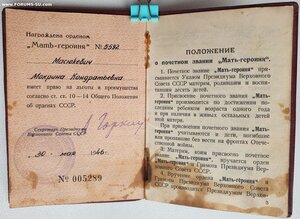 www.FORUMS-SU.com
Награждена орденом
"Мать-героиня" №
Макрина Кондратьевна
имеет право на льготы и преимущества
согласно ст. ст. 10—14 Общего Положения
об орденах СССР.
Секретарь Президиума
Верховного Совета СССР
30 мая 1946 г.
№ 005289
ПОЛОЖЕНИЕ
о почетном звании „Мать-героиня".
1. Почетное звание „Мать-героиня"
Указом Президиума Верховного
Совета СССР матерям, родившим и
воспитавшим десять и более детей.
2. Присвоение почетного звания „Мать-
героиня" производится по достижении
последним ребенком возраста одного года
и при наличии в живых остальных детей
этой матери.
3. При присвоении почетного звания „Мать-
героиня" учитываются и дети, погибшие
или пропавшие без вести на фронтах Отече-
ственной войны.
4. Матерям, коим присвоено звание
„Мать-героиня", вручается орден
„Мать-героиня" и Грамота Президиума
Верховного Совета СССР.